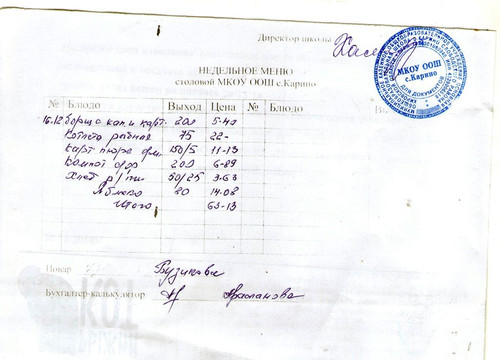 Директор школы
МКОУ ООШ
с.Карино
НЕДЕЛЬНОЕ МЕНЮ
столовой МКОУ ООШ с.Карино
№ Блюдо Выход Цена № Блюдо
16.12 борщ с кап и карт. 200 5-40
Котлета рыбная 75 22-
карт пюре 150/5 11-13
Компот 200 6-89
Хлеб р/пш 50/25 3-63
Яблоко 80 14-08
Итого 63-13
Повар
Бухгалтер-калькулятор